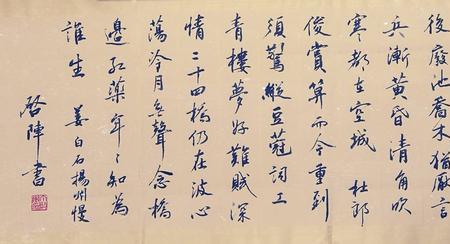 後廢池喬木猶厭言
兵漸黃昏清角吹
寒都在空城 杜郎
俊賞算而今重到
須驚縱豆蔻詞工
青樓夢好難賦深
情二十四橋仍在波心
蕩冷月無聲念橋
邊紅藥年〻知為
誰生 姜白石揚州慢
啓陣書